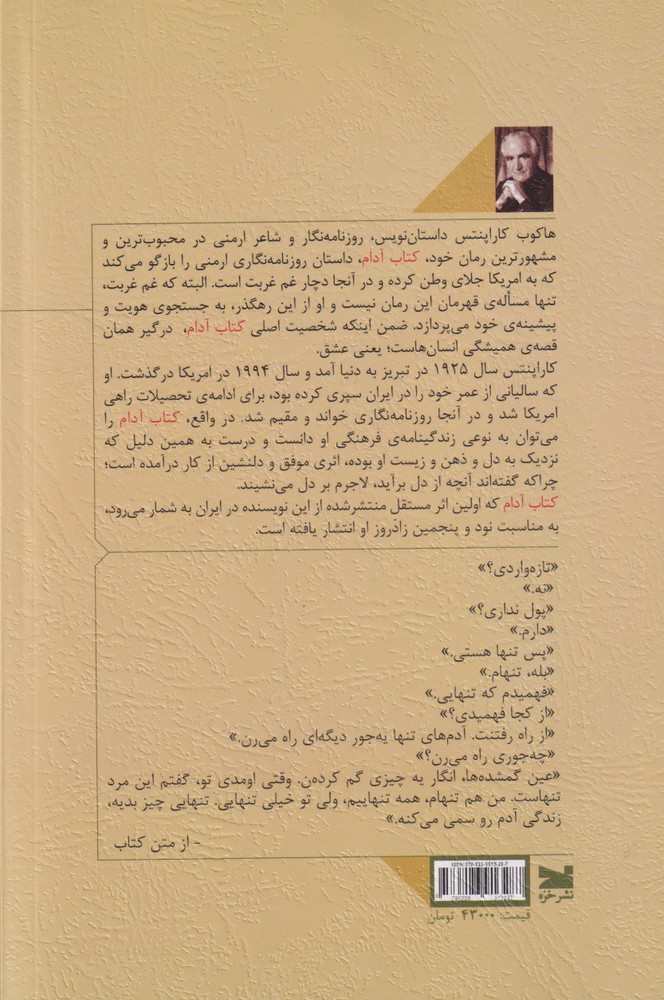 هاکوب کاراپنتس داستان‌نویس، روزنامه‌نگار و شاعر ارمنی در محبوب‌ترین و
مشهورترین رمان خود، کتاب آدام، داستان روزنامه‌نگاری ارمنی را بازگو می‌کند
که به امریکا جلای وطن کرده و در آنجا دچار غم غربت است. البته که غم غربت،
تنها مسأله‌ی قهرمان این رمان نیست و او از این رهگذر، به جستجوی هویت و
پیشینه‌ی خود می‌پردازد. ضمن اینکه شخصیت اصلی کتاب آدام، درگیر همان
قصه‌ی همیشگی انسان‌هاست؛ یعنی عشق.
کاراپنتس سال ۱۹۲۵ در تبریز به دنیا آمد و سال ۱۹۹۴ در امریکا درگذشت. او
که سالیانی از عمر خود را در ایران سپری کرده بود، برای ادامه‌ی تحصیلات راهی
امریکا شد و در آنجا روزنامه‌نگاری خواند و مقیم شد. در واقع، کتاب آدام را
می‌توان به نوعی زندگینامه‌ی فرهنگی او دانست و درست به همین دلیل که
نزدیک به دل و ذهن و زیست او بوده، اثری موفق و دلنشین از کار درآمده است؛
چراکه گفته‌اند آنچه از دل برآید، لاجرم بر دل می‌نشیند.
کتاب آدام که اولین اثر مستقل منتشرشده از این نویسنده در ایران به شمار می‌رود،
به مناسبت نود و پنجمین زادروز او انتشار یافته است.
«تازه‌واردی؟»
«نه.»
«پول نداری؟»
«دارم.»
«پس تنها هستی.»
«بله، تنهام.»
«فهمیدم که تنهایی.»
«از کجا فهمیدی؟»
«از راه رفتنت. آدم‌های تنها یه‌جور دیگه‌ای راه می‌رن.»
«چه‌جوری راه می‌رن؟»
«عین گمشده‌ها، انگار یه چیزی گم کرده‌ن. وقتی اومدی تو، گفتم این مرد
تنهاست. من هم تنهام، همه تنهاییم، ولی تو خیلی تنهایی. تنهایی چیز بدیه،
زندگی آدم رو سمی می‌کنه.»
- از متن کتاب
نشر خزه
قیمت: ۴۳۰۰۰ تومان